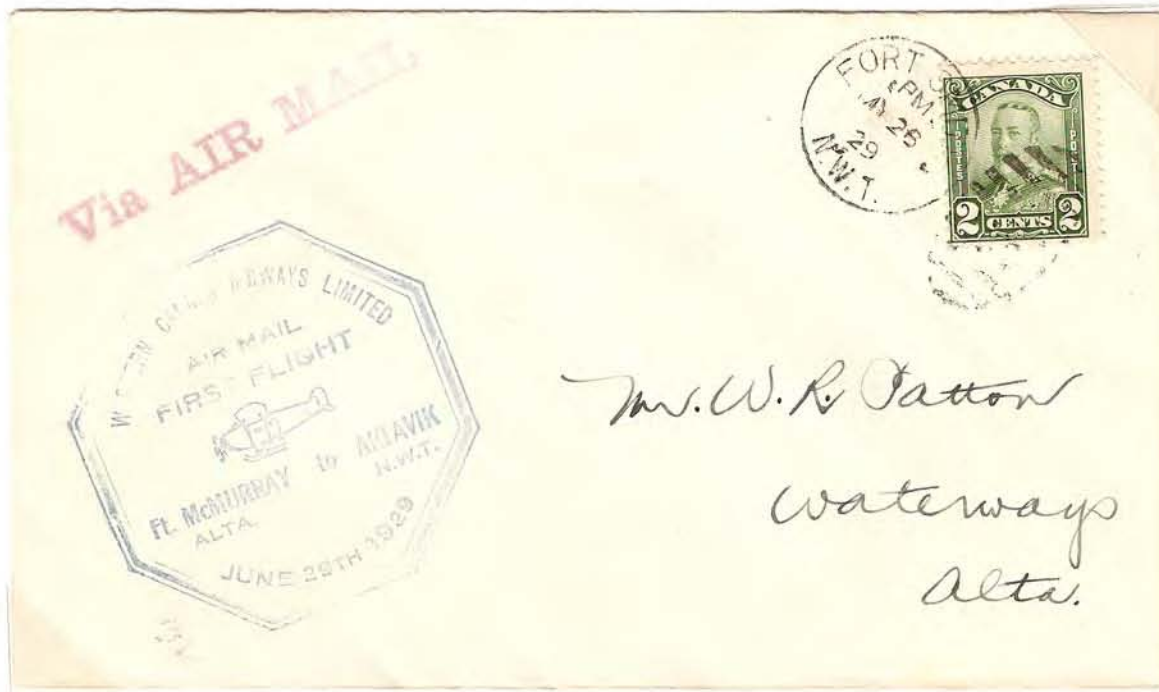 Via AIR MAIL
FORT
PM
26
29
N.W.T.
CANADA
POSTES
POST
2 CENTS 2
AIRWAYS LIMITED
AIR MAIL
FIRST FLIGHT
Ft. McMURRAY to AKLAVIK
ALTA. N.W.T.
JUNE 29TH 1929
Mr. W. R. Patton
Waterways
Alta.